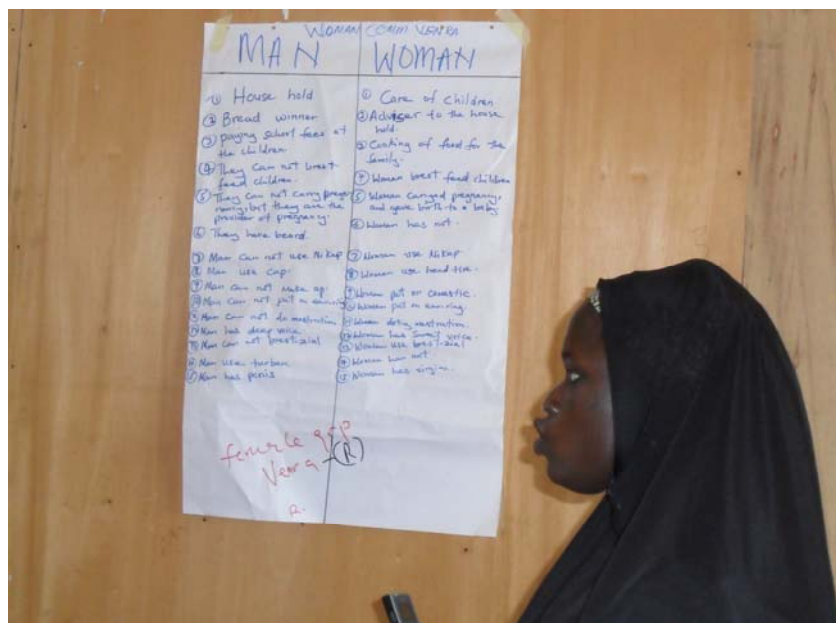 WOMAN COMM VENRA
MAN
① House hold
② Bread winner
③ paying school fees of
the children.
④ They can not breast
feed children.
⑤ They can not carry preg
nancy, but they are the
provider of pregnancy.
⑥ They have beard.
⑦ Man can not use Nikap
⑧ Man use cap.
⑨ Man can not make up.
⑩ Man can not put on earring
⑪ Man can not do mestration
⑫ Man has deep voice
⑬ Man can not
⑭ Man use turban
⑮ Man has penis
WOMAN
① Care of children
② Adviser to the house
hold.
③ Cooking of food for the
family.
④ Woman brest feed children
⑤ Woman carryed pregnancy,
and gave birth to a baby
⑥ Woman has not.
⑦ Woman use Nikap
⑧ Woman use head tire.
⑨ Woman put on cosmetic.
⑩ Woman put on earring.
⑪ Woman doting mestration.
⑫ Woman has small voice.
⑬ Woman use
⑭ Woman has not
⑮ Woman has virgina.
female grp
Venra - (R)
R.